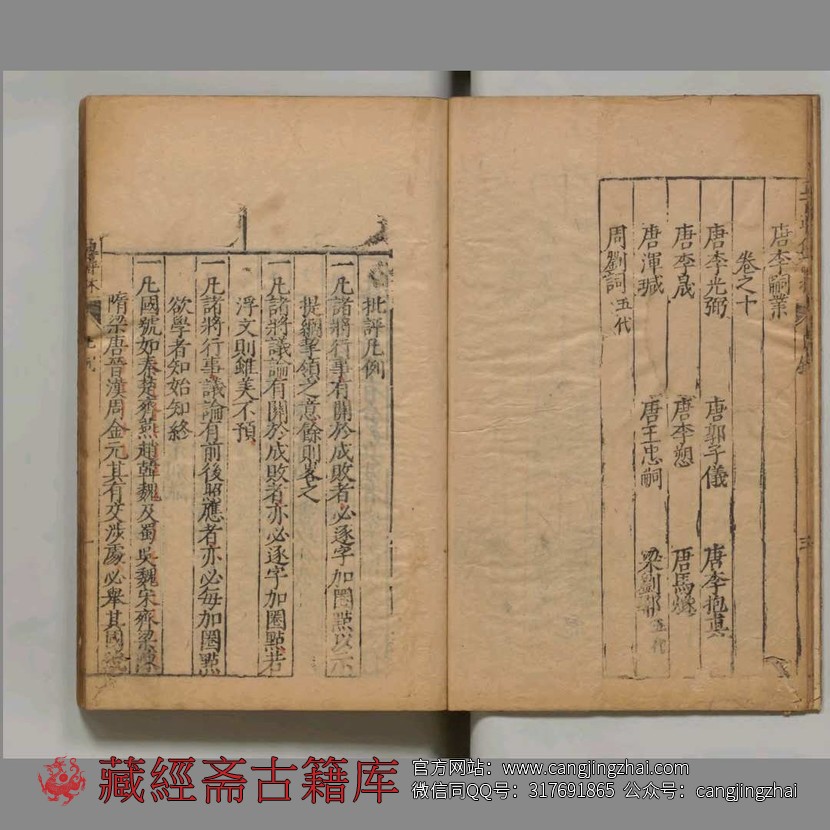 唐李嗣業
卷之十
唐李光弼 唐郭子儀 唐李抱眞
唐李晟 唐李愬 唐馬燧
唐渾瑊 唐王忠嗣 梁劉鄩五代
周劉詞五代
批評凡例
一凡諸將行事有關於成敗者必逐字加圈點以示
提綱挈領之意餘則畧之
一凡諸將議論有關於成敗者亦必逐字加圈點若
浮文則雖美不預
一凡諸將行事議論有前後照應者亦必每加圈點
欲學者知始知終
一凡國號如秦楚齊燕趙韓魏及蜀吳魏宋齊梁陳
隋梁唐晉漢周金元其有交涉處必舉其國號
藏經斋古籍库
官方网站：www.cangjingzhai.com
微信同QQ号：317691865 公众号：cangjingzhai